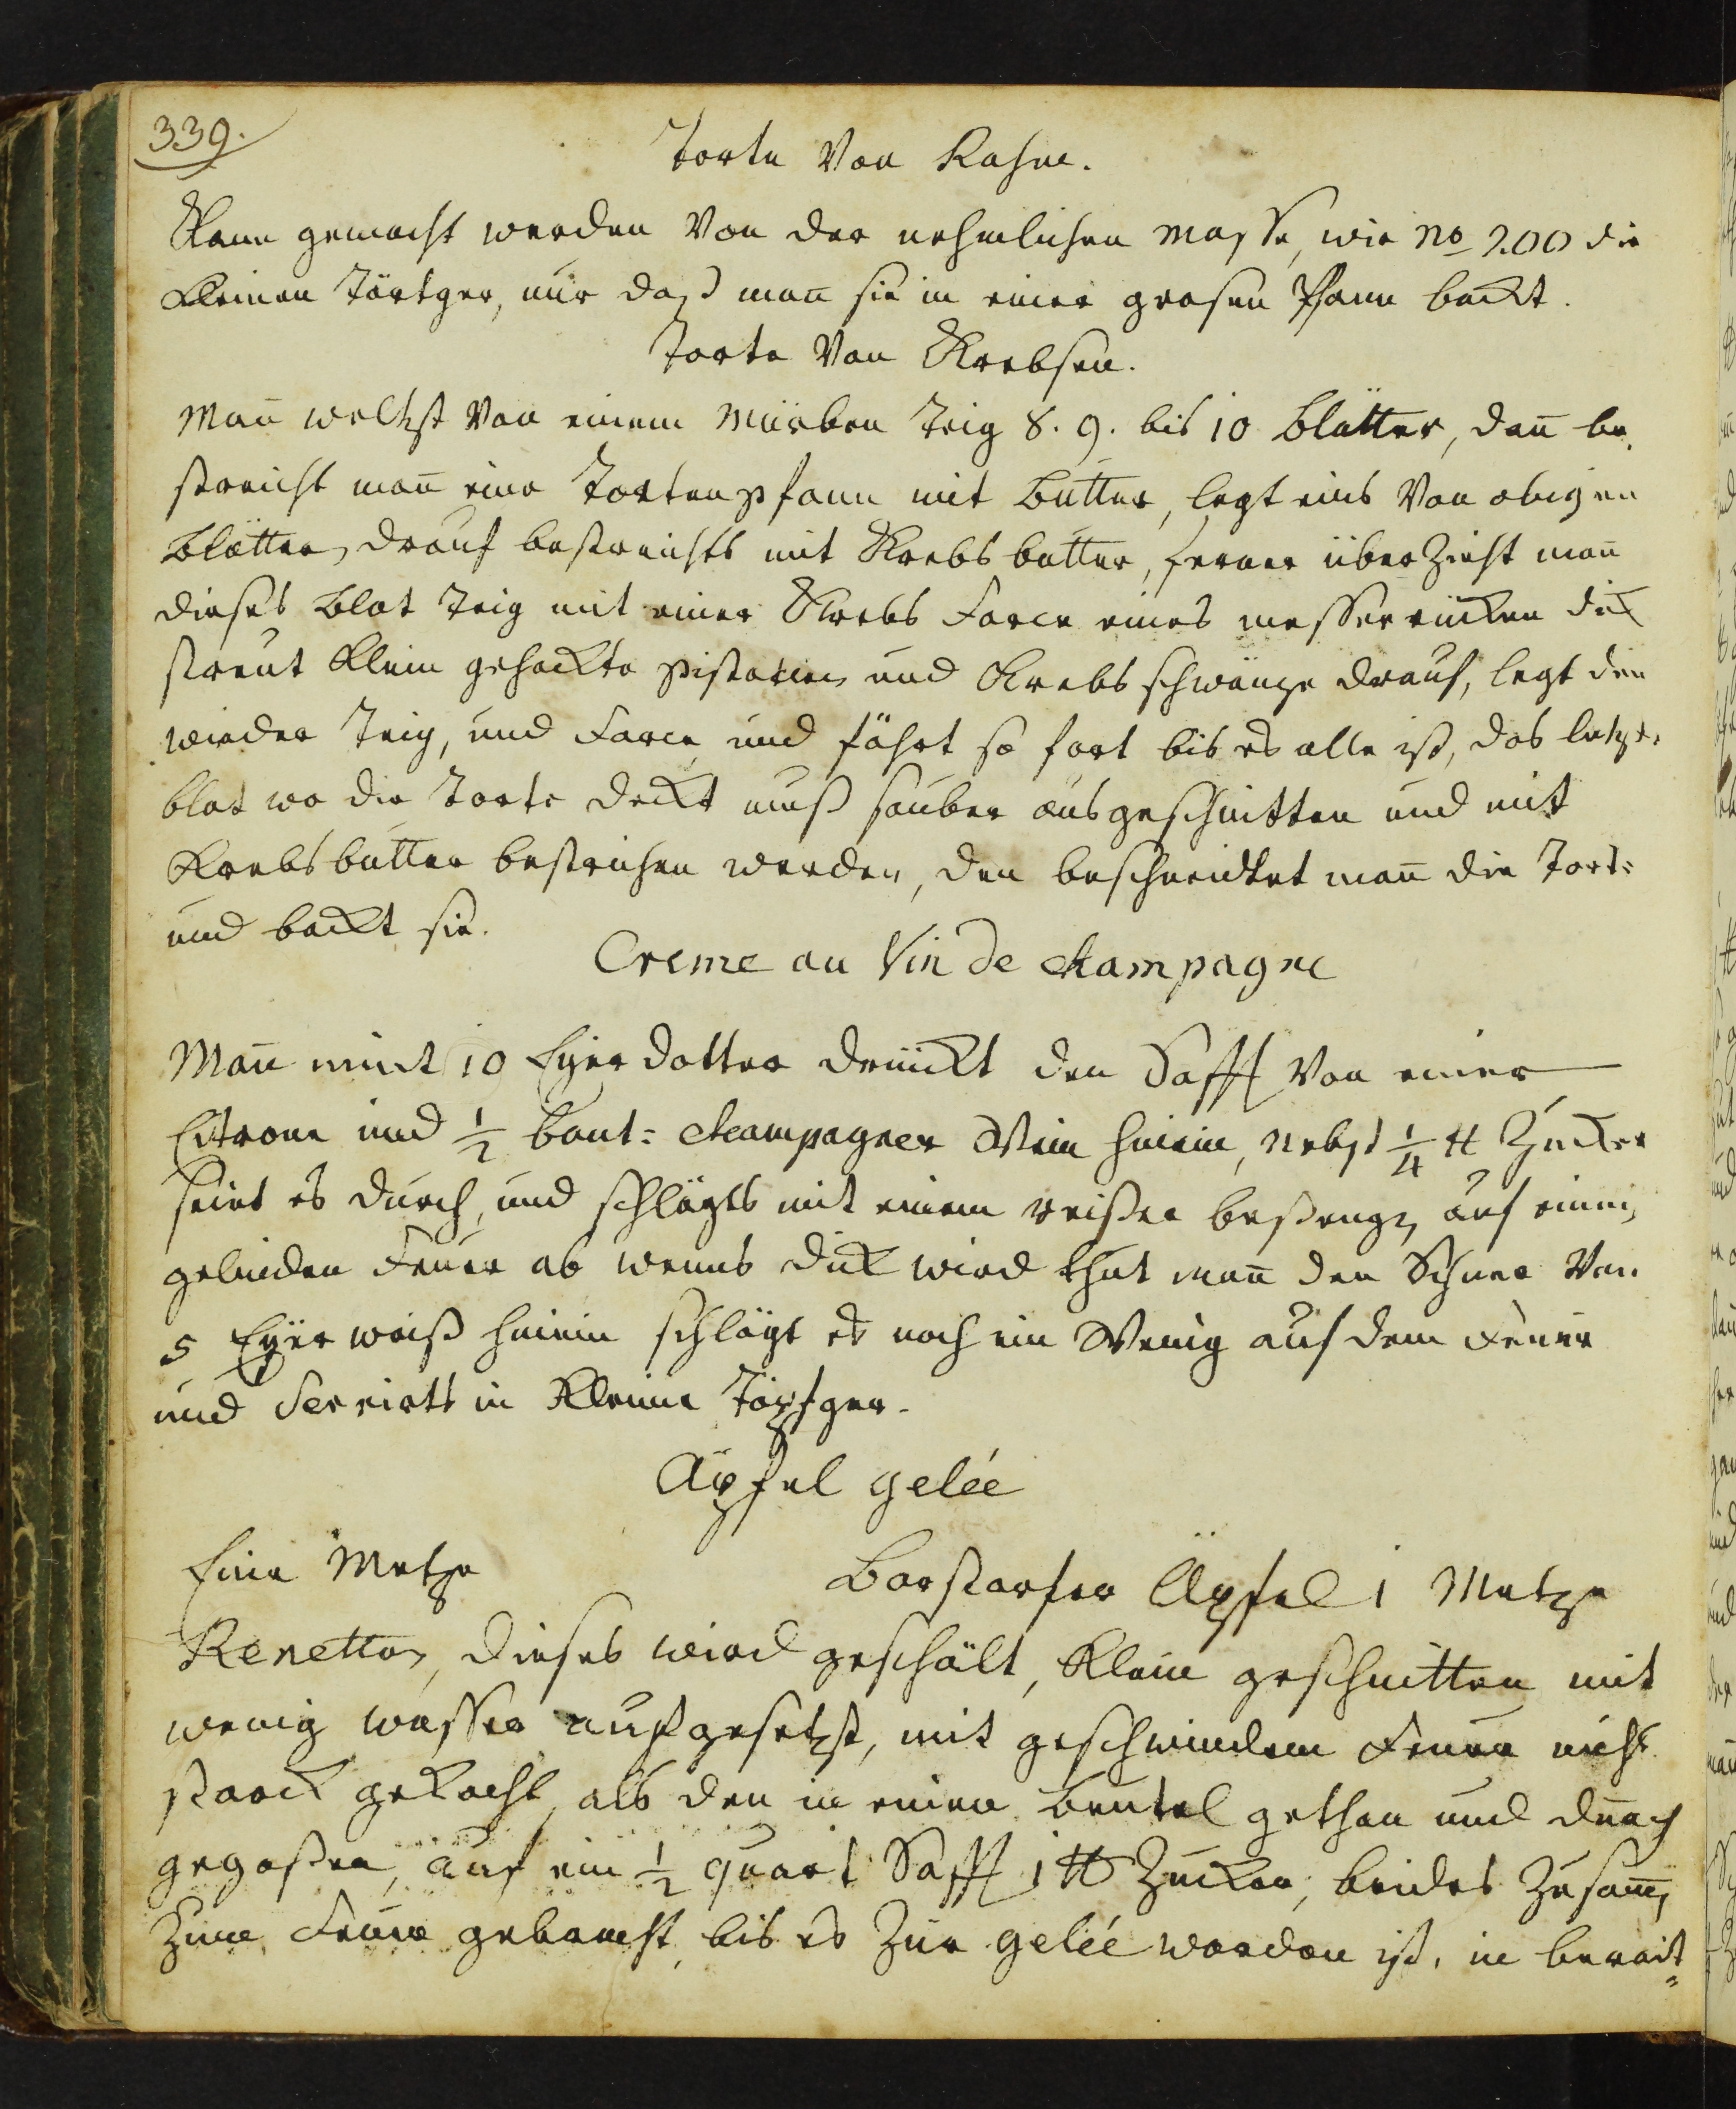 339.
Torte Von Rahm.
Kann gemacht werden Von der nehmlichen Masse, wie No 200 die
kleinen Törtger, nur daß man̄ sie in einer grosen Pfann backt.
Torte Von Krebsen.
Man̄ welchst Von einem Mürben Teig 8. 9. bis 10 Blätter, dan̄ be„
streicht man̄ eine Tortenpfann mit Butter, legt eins Von obigen
Blätter, drauf bestreichts mit Krebsbutter, ferner überzieht man̄
dieses Blat Teig mit einer Krebs Farce eines messerrücken dick
streut klein gehackte pistatien und Krebsschwänze drauf, legt den
wieder Teig, und Farce und fährt so fort bis es alle ist, das letzte
blat wo die Torte deckt muß sauber ausgeschnitten und mit
Krebsbutter bestrichen werden, den beschneidtet man̄ die Tort=
und backt sie.
Creme au Vin de champagne
Man̄ nimt 10 Eyer dotter drückt den Safft Von einer
Citrone und 1/2 bout= champagner Wein hinein, nebst 1/4 ℔ Zucker
seiet es durch, und schlägts mit einem reißer beßengen auf einem
gelinden Feuer ab wenns dick wird thut man̄ den Schnee Von
5 Eyer weiß hinein schlägt es noch ein Wenig auf dem Feuer
und Servirts in kleine Töpfger.
Äpfel gelée
Eine Metze Borstorfer Äpfel 1 Metze
Renetten, dieses wird geschält, klein geschnitten mit
wenig wasser aufgesetzt, mit geschwindem Feuer nicht
starck gekocht, als den in einen beutel gethan und durch
gegoßen, auf ein 1/2 quart Safft 1 ℔ Zucker, beides Zusam̄en
Zum Feuer gebracht, bis es Zur gelée worden ist, in bereit=